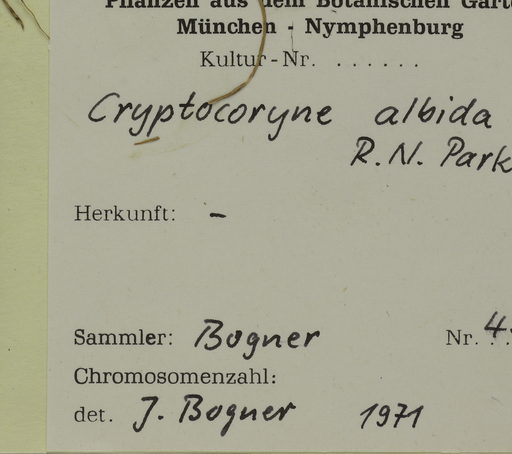 Pflanzen aus dem Botanischen Gart
München - Nymphenburg
Kultur - Nr. . . . . . .
Cryptocoryne albida
R. N. Park
Herkunft: -
Sammler: Bogner Nr. 4
Chromosomenzahl:
det. J. Bogner 1971